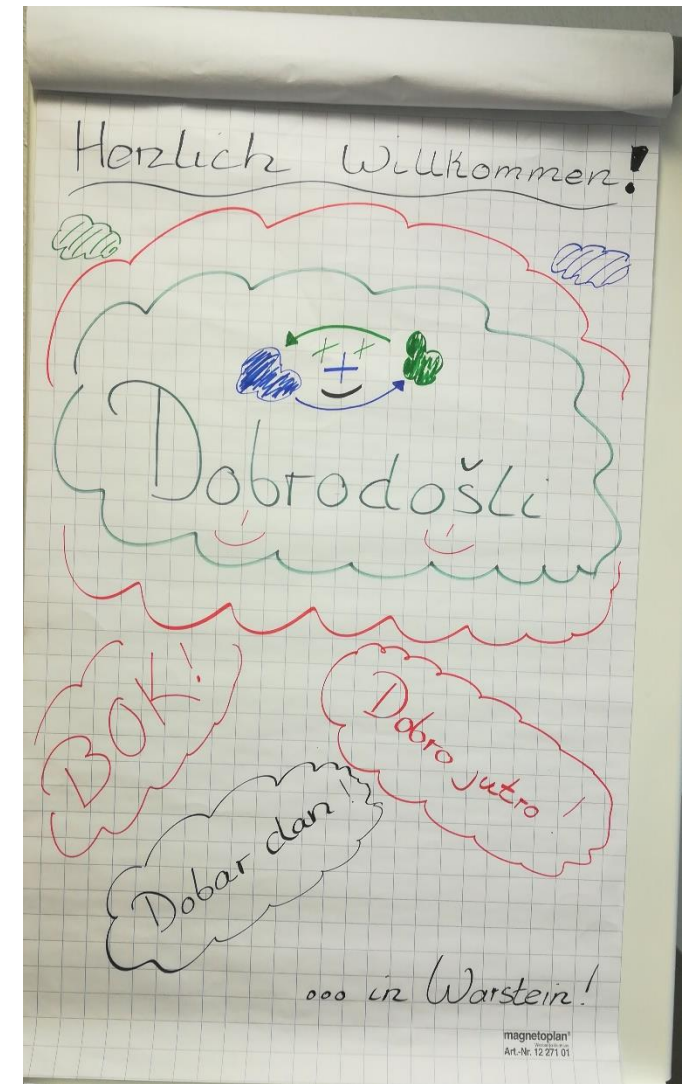 Herzlich Willkommen!
Dobrodošli
BOK!
Dobro jutro!
Dobar dan!
... in Warstein!
magnetoplan®
Art.-Nr. 12 271 01